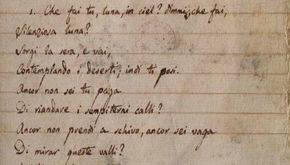 1. Che fai tu, luna, in ciel? Dimmi, che fai,
Silenziosa luna?
Sorgi la sera, e vai,
Contemplando i deserti; indi ti posi.
Ancor non sei tu paga
Di riandare i sempiterni calli?
Ancor non prendi a schivo, ancor sei vaga
Di mirar queste valli?